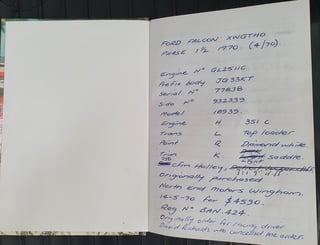 FORD FALCON XWGTHO
PHASE 1½ 1970 (4/70).
Engine Nº GL25116.
Prefix body JG33KT
Serial Nº 77838
Side Nº 932339
Model 18939.
Engine H 351 C
Trans L Top loader
Paint R Diamond white.
Trim K saddle.
750 cfm Holley,
Originally purchased
North End Motors Wingham.
14-5-70 for $4590.
Reg Nº BAN. 424.
Originally order for racing driver
David Richards who cancelled the order.